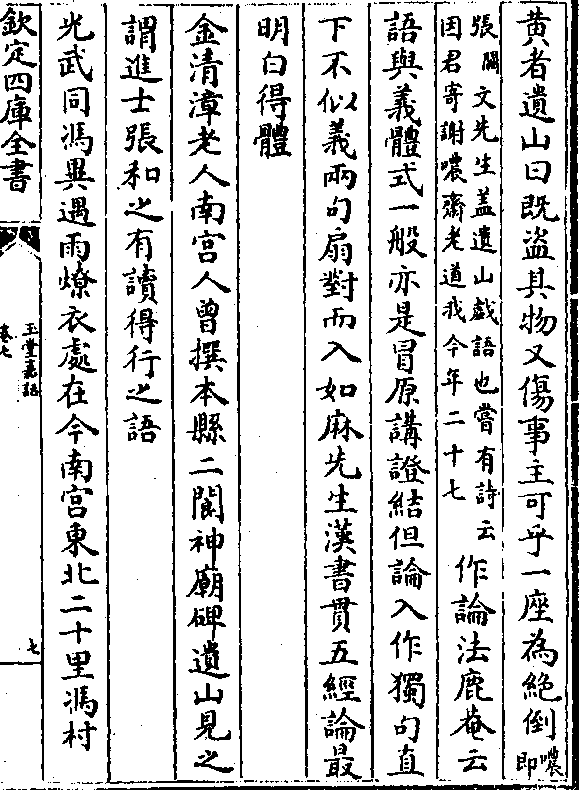 黄者遺山曰既盗其物又傷事主可乎一座為絶倒噥即
張闕文先生盖遺山戯語也嘗有詩云
因君寄謝噥齋老道我今年二十七
作論法鹿菴云
語與義體式一般亦是冒原講證結但論入作獨句直
下不似義兩句扇對而入如麻先生漢書貫五經論最
明白得體
金清漳老人南宫人曾撰本縣二閬神廟碑遺山見之
謂進士張和之有讀得行之語
光武同馮異遇雨燎衣處在今南宫東北二十里馮村
欽定四庫全書
玉堂嘉話
卷七
七